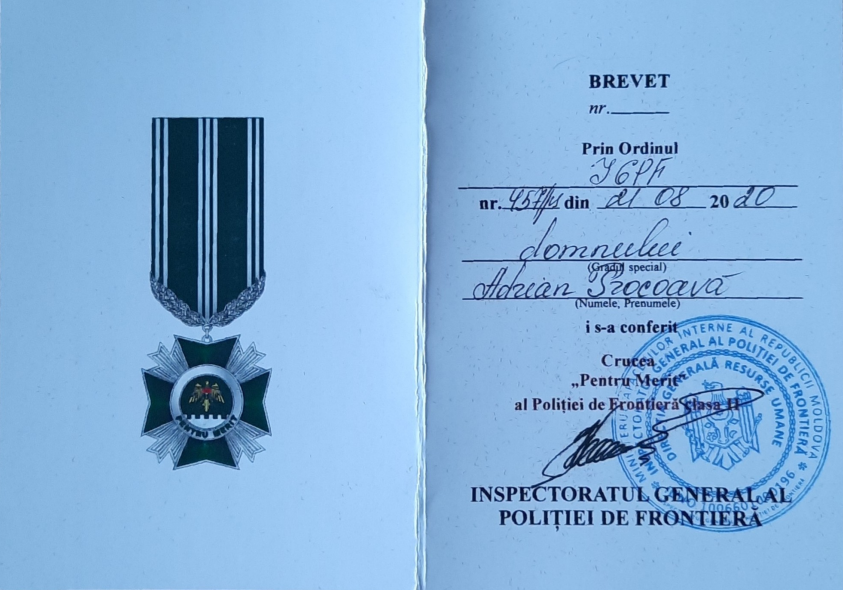 PENTRU MERIT
BREVET
nr.
Prin Ordinul
IGPF
nr. 457/p din 21 08 2020
domnului
(Gradul special)
Adrian Procoavă
(Numele, Prenumele)
i s-a conferit
Crucea
„Pentru Merit”
al Poliției de Frontieră clasa II
INSPECTORATUL GENERAL AL
POLIȚIEI DE FRONTIERĂ
MINISTERUL AFACERILOR INTERNE AL REPUBLICII MOLDOVA
INSPECTORATUL GENERAL AL POLIȚIEI DE FRONTIERĂ
DIRECȚIA GENERALĂ RESURSE UMANE